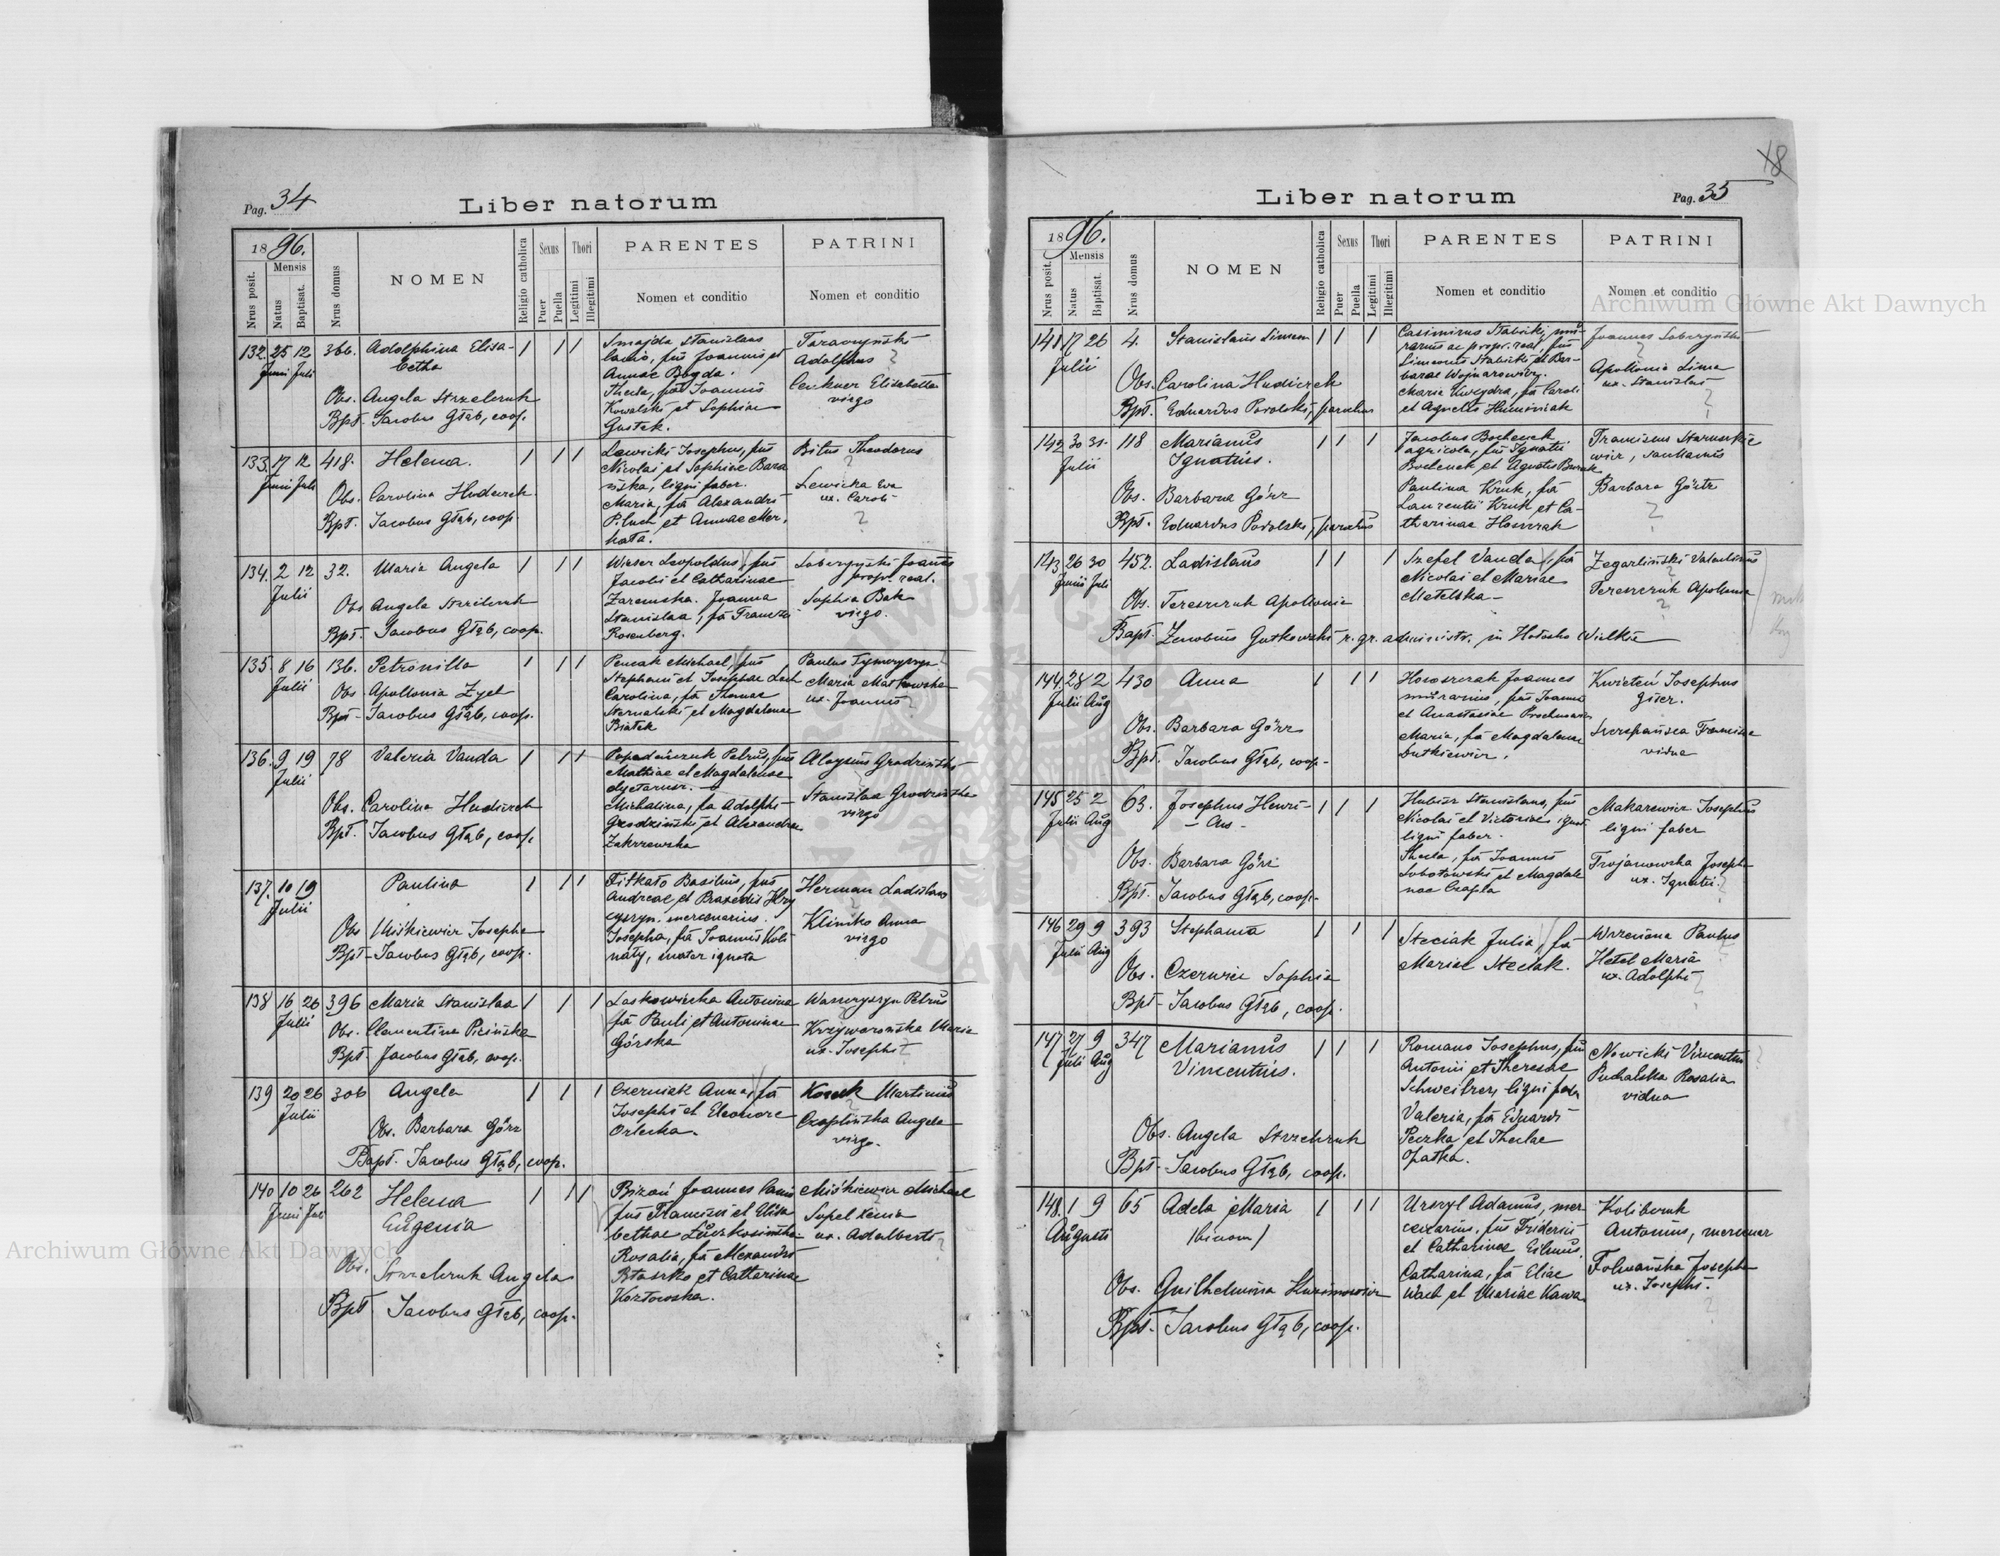 Pag. 34
Liber natorum
1896.
Mensis
Nrus posit.
Natus
Baptisat.
Nrus domus
NOMEN
Religio catholica
Sexus
Puer
Puella
Thori
Legitimi
Illegitimi
PARENTES
Nomen et conditio
PATRINI
Nomen et conditio
132. 25 12 366. Adolphina Elisa-
Junii Juli betha
Obs. Angela Strzelczuk
Bpt. Jacobus Głąb, coop.
Stanislaus
fus Joannis et
Annae Bogda.
Thecla, fa Joannis
Kowalski et Sophiae
Gustek.
Adolphus ?
Elisabetha
virgo
133. 17 12 418. Helena.
Junii Juli
Obs. Carolina Hudiczek
Bpt. Jacobus Głąb, coop.
Lewicki Josephus, fus
Nicolai et Sophiae Bara
ńska, ligni faber.
Maria, fa Alexandri
Piluch et Annae Mer-
hata.
Bilus Theodorus
?
Lewicka Eva
ux. Caroli
?
134. 2 12 32. Maria Angela
Julii
Obs Angela Strzelczuk
Bpt. Jacobus Głąb, coop.
Wieser Leopoldus, fus
Jacobi et Catharinae
Zaremska. Joanna
Stanislaa, fa Francisci
Rosenberg.
Soberzyński Joannes
propr. real.
Sophia Bak
virgo.
135. 8 16 136. Petronilla
Julii
Obs Apollonia Zyel
Bpt- Jacobus Głąb, coop.
Pencak Michael, fus
Stephani et Josephae Lech
Carolina, fa Thomae
Sternalski et Magdalenae
Białek
Paulus
Maria Matkowska
ux. Joannis ?
136. 9 19 78 Valeria Vanda
Julii
Obs. Carolina Hudiczek
Bpt. Jacobus Głąb, coop.
Popadańczuk Petrus, fus
Mathiae et Magdalenae
dyetarius.
Michalina, fa Adolphi
Grodziński et Alexandrae
Zakrzewska
Aloysius Grodziński
Stanislaa Grodzińska
virgo
137. 10 19 Paulina
Julii
Obs Miśkiewicz Josepha
Bpt- Jacobus Głąb, coop.
Fitkało Basilius, fus
Andreae et Praxedis Hry
cyszyn. mercenarius.
Josepha, fa Joannis Koli
naty, mater ignota
Herman Ladislaus
Klimko Anna
virgo
138 16 26 396 Maria Stanislaa
Julii
Obs. Clementina
Bpt- Jacobus Głąb, coop.
Laskowiecka Antonina
fa Pauli et Antoninae
Górska
Wawryszyn Petrus
Krzyworońska Maria
ux. Josephi ?
139 20 26 306 Angela
Julii
Obs. Barbara Görz
Bapt. Jacobus Głąb, coop.
Czerniak Anna, fa
Josephi et Eleonore
Orlecka.
Kosek Martinus
?
Czaplińska Angela
virgo.
140 10 26 262 Helena
Junii Juli Eugenia
Obs. Strzelczuk Angela
Bpt Jacobus Głąb, coop.
Bizoń Joannes
fus Francisci et Elisa
bethae
Rosalia, fa Alexandri
Błaszko et Catharinae
Kozłowska.
Miśkiewicz Michael
?
Sopel Xenia
ux. Adalberti
18
Pag. 35
Liber natorum
1896.
Mensis
Nrus posit.
Natus
Baptisat.
Nrus domus
NOMEN
Religio catholica
Sexus
Puer
Puella
Thori
Legitimi
Illegitimi
PARENTES
Nomen et conditio
PATRINI
Nomen et conditio
141 17 26 4. Stanislaus Simeon
Julii
Obs. Carolina Hudiczek
Bpt. Eduardus Podolski, parochus
Casimirus Stabicki, mu-
rarius ac propr. real, fus
Simeonis Stabicki et Bar-
barae Wojnarowicz.
Maria Kweydra, fa Caroli
et Agnetis Huminiak
Joannes Soberzyński
?
Apollonia Lima
ux. Stanislai
?
142 30 31. 118 Marianus
Julii Ignatius.
Obs. Barbara Görz
Bpt. Eduardus Podolski, parochus
Jacobus Bochenek
agricola, fus Ignatii
Bochenek et Agnetis Burak
Paulina Kruk, fa
Laurentii Kruk et Ca-
tharinae Hoszczak
Franciscus Starunkie
wicz,
Barbara Görtz
?
143 26 30 452. Ladislaus
Junii Juli
Obs. Tereszczuk Apollonia
Bapt. Zenobius Gutkowski r. gr. administr. in Hołosko Wielkie
Szefel Vanda, fa
Nicolai et Mariae
Metelska-
Zegarliński Valentinus
?
Tereszczuk Apollonia
?
144 28 2 430 Anna
Julii Aug
Obs. Barbara Görz
Bpt. Jacobus Głąb, coop-
Howszczak Joannes
murarius, fus Joannis
et Anastasiae
Maria, fa Magdalenae
Sutkiewicz.
Kwicteń Josephus
Szczepańska Francisca
vidua
145 25 2 63. Josephus Henri-
Julii Aug -cus-
Obs. Barbara Görz
Bpt. Jacobus Głąb, coop-
Hubisz Stanislaus, fus
Nicolai et Victoriae ignot
ligni faber.
Thecla, fa Joannis
Sobotowski et Magdale
nae Czapla
Makarewicz Josephus
ligni faber
Trojanowska Josepha
ux. Ignatii. ?
146 29 9 393 Stephania
Julii Aug
Obs. Czerwiec Sophia
Bpt- Jacobus Głąb, coop.
Steciak Julia, fa
Mariae Steciak.
Wrzesiona Paulus
Hetel Maria ?
ux. Adolphi
?
147 27 9 347 Marianus
Julii Aug Vincentius.
Obs. Angela Strzelczuk
Bpt- Jacobus Głąb, coop.
Romano Josephus, fus
Antonii et Theresiae
Schweitzer, ligni faber
Valeria, fa Eduardi
Peczka et Theclae
Opałka.
Nowicki Vincentius ?
Puchalska Rosalia
vidua
148. 1 9 65 Adela Maria
Augusti /binom/
Obs. Guilhelmina
Bpt- Jacobus Głąb, coop.
Urszyl Adamus, mer
cenarius, fus Friderici
et Catharinae
Catharina, fa Eliae
Wach et Mariae Kawa
Koliberuk
Antonius, mercenar
Folwańska Josepha
ux. Josephi.
?
Archiwum Główne Akt Dawnych
Archiwum Główne Akt Dawnych